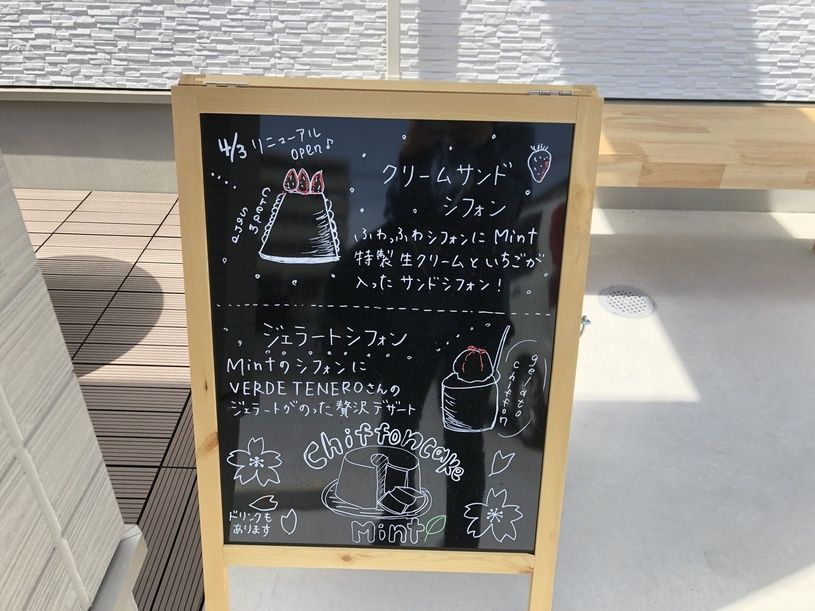 4/3 リニューアル
open♪
クリームサンド
シフォン
ふわっふわシフォンに Mint
特製 生クリームと いちごが
入った サンドシフォン!
ジェラートシフォン
Mintのシフォンに
VERDE TENEROさんの
ジェラートがのった 贅沢 デザート
gelato
chiffon
Chiffoncake
Mint
ドリンクも
あります